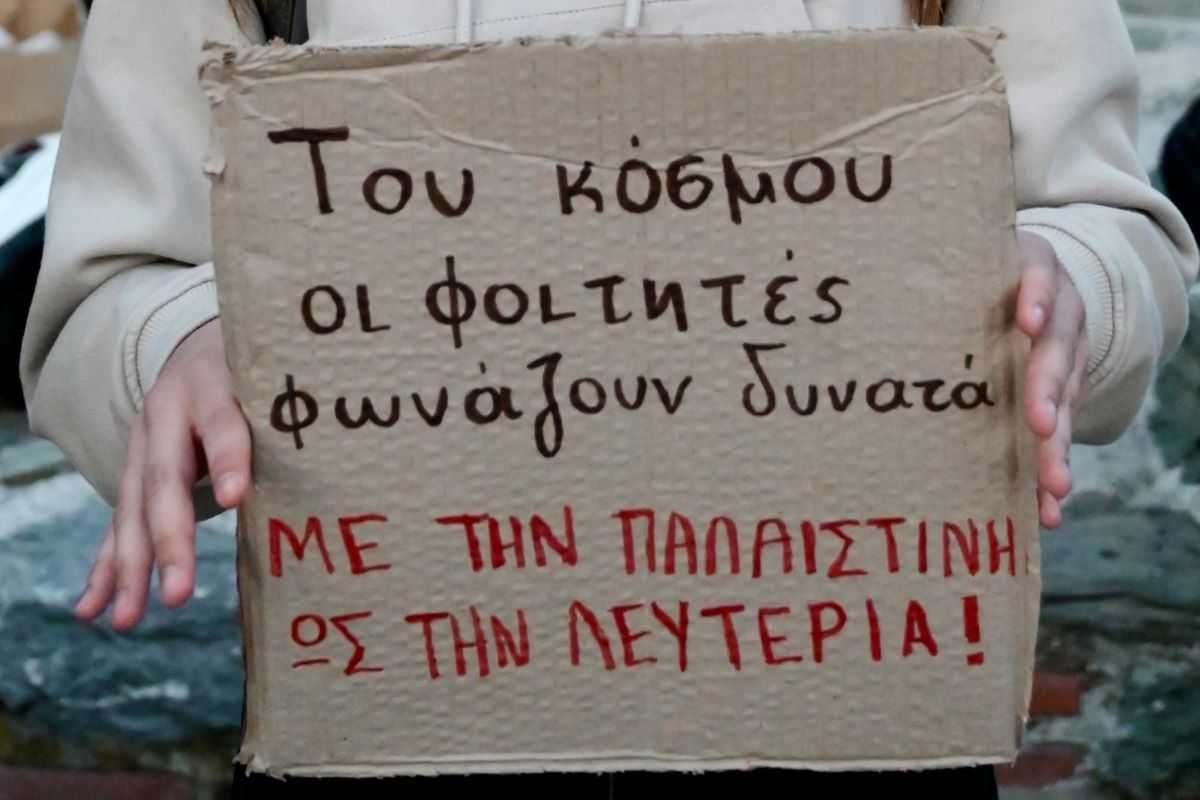 Του κόσμου
οι φοιτητές
φωνάζουν δυνατά
ΜΕ ΤΗΝ ΠΑΛΑΙΣΤΙΝΗ
ΩΣ ΤΗΝ ΛΕΥΤΕΡΙΑ!